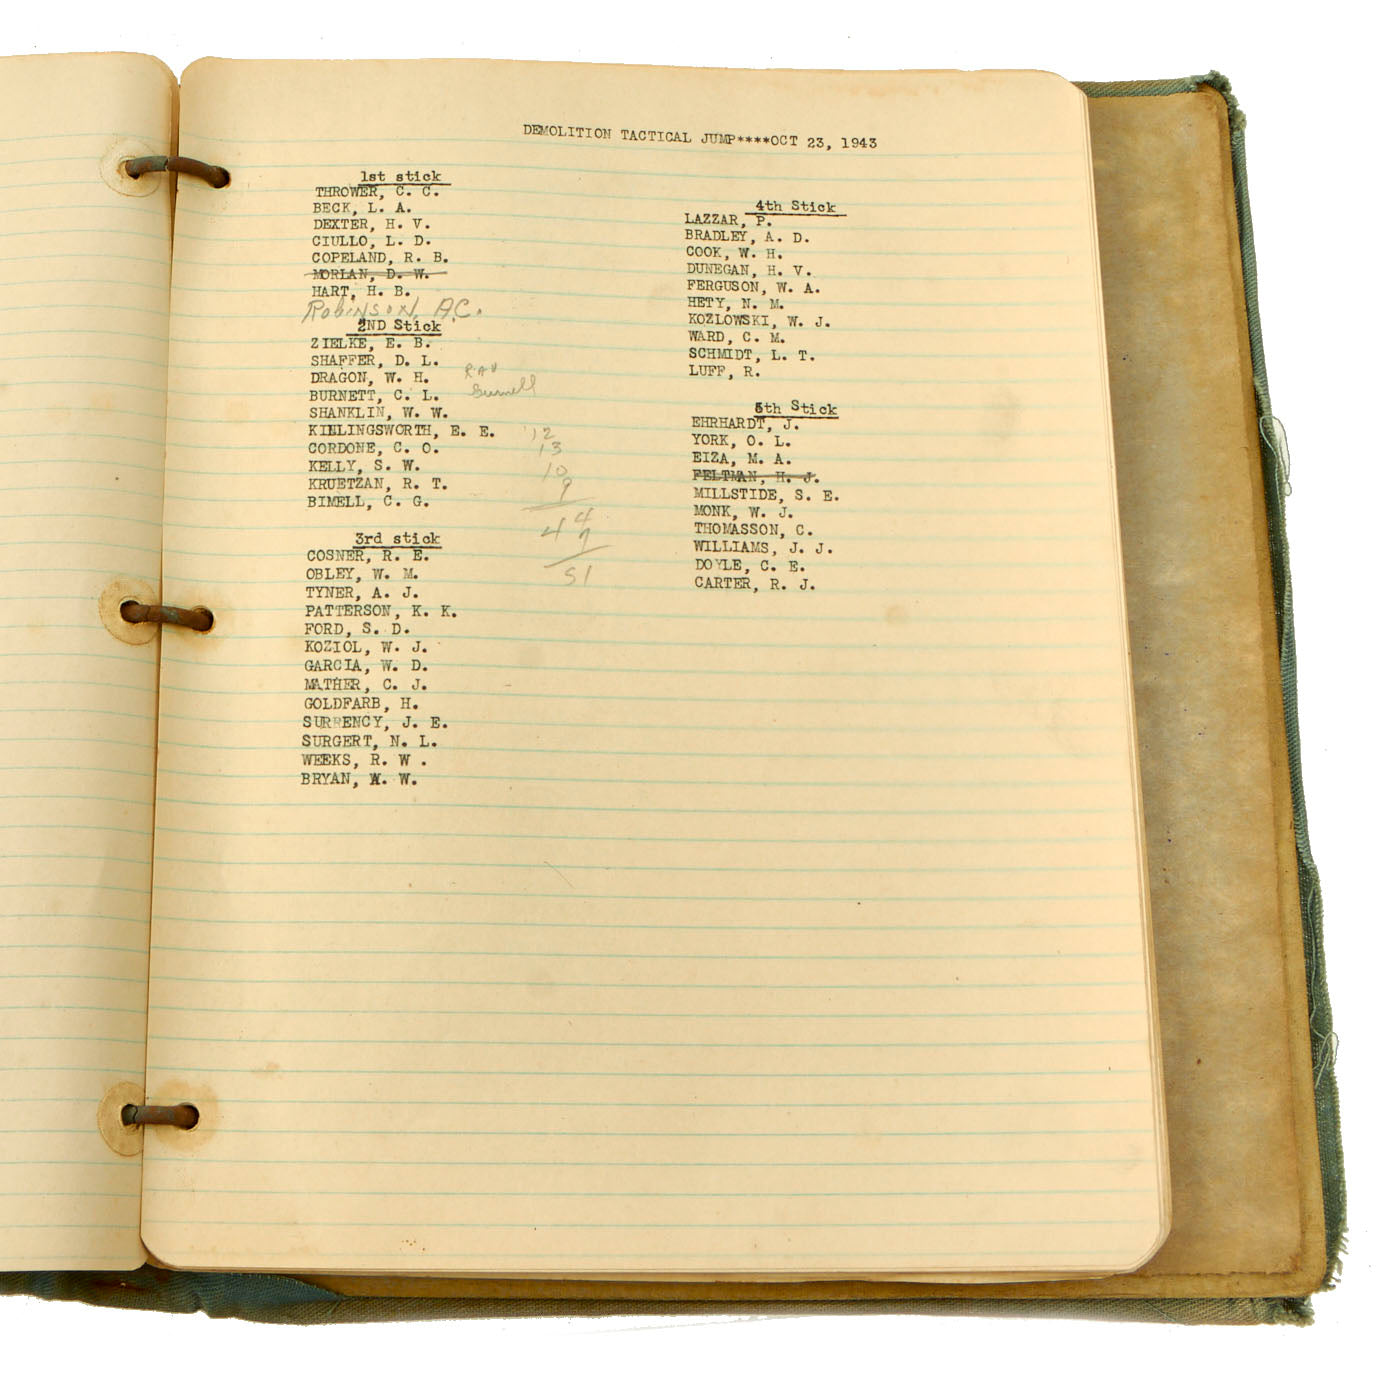 DEMOLITION TACTICAL JUMP****OCT 23, 1943
1st stick
THROWER, C. C.
BECK, L. A.
DEXTER, H. V.
CIULLO, L. D.
COPELAND, R. B.
MORLAN, D. W.
HART, H. B.
Robinson, A.C.
2ND Stick
ZIELKE, E. B.
SHAFFER, D. L.
DRAGON, W. H.
BURNETT, C. L.
SHANKLIN, W. W.
KILLINGSWORTH, E. E.
CORDONE, C. O.
KELLY, S. W.
KRUETZAN, R. T.
BIMELL, C. G.
12
13
10
9
44
7
51
3rd stick
COSNER, R. E.
OBLEY, W. M.
TYNER, A. J.
PATTERSON, K. K.
FORD, S. D.
KOZIOL, W. J.
GARCIA, W. D.
MATHER, C. J.
GOLDFARB, H.
SURRENCY, J. E.
SURGERT, N. L.
WEEKS, R. W .
BRYAN, W. W.
4th Stick
LAZZAR, P.
BRADLEY, A. D.
COOK, W. H.
DUNEGAN, H. V.
FERGUSON, W. A.
HETY, N. M.
KOZLOWSKI, W. J.
WARD, C. M.
SCHMIDT, L. T.
LUFF, R.
5th Stick
EHRHARDT, J.
YORK, O. L.
EIZA, M. A.
FELTMAN, H. J.
MILLSTIDE, S. E.
MONK, W. J.
THOMASSON, C.
WILLIAMS, J. J.
DOYLE, C. E.
CARTER, R. J.